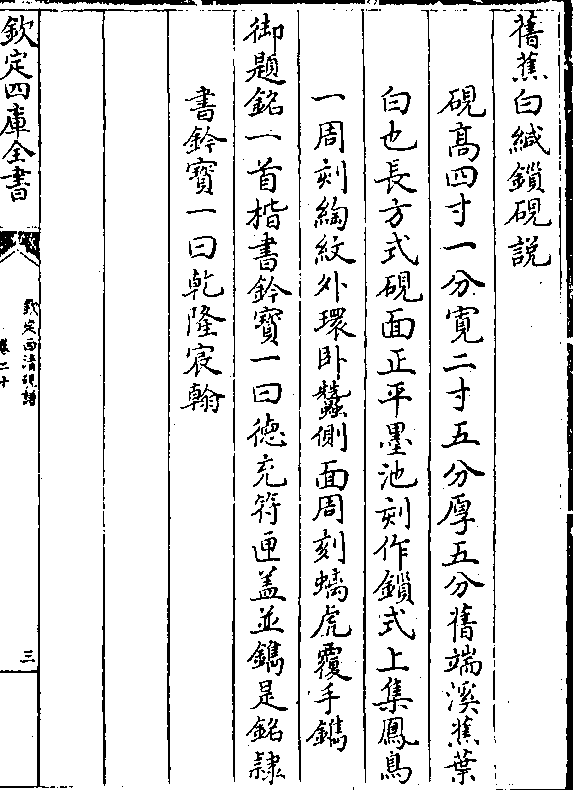 舊蕉白緘鎖硯說
硯高四寸一分寬二寸五分厚五分舊端溪蕉葉
白也長方式硯面正平墨池刻作鎖式上集鳳鳥
一周刻綯紋外環卧蠶側面周刻螭虎覆手鐫
御題銘一首楷書鈐寶一曰德充符匣蓋並鐫是銘隷
書鈐寶一曰乾隆宸翰
欽定四庫全書
欽定西清硯譜
卷二十
三